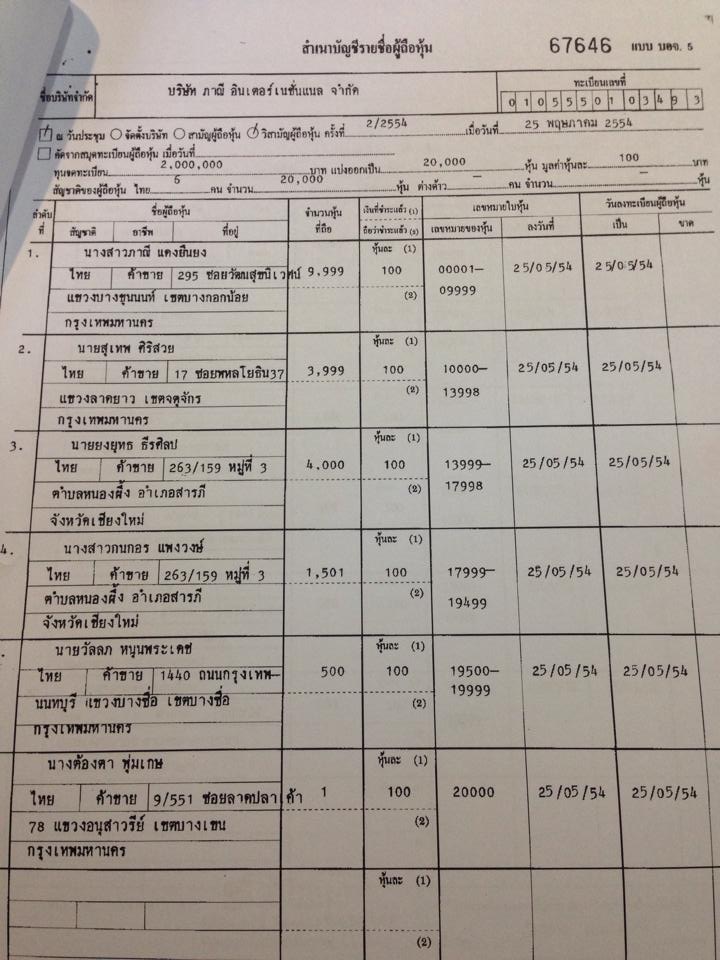 สำเนาบัญชีรายชื่อผู้ถือหุ้น 67646 แบบ บอจ. 5
ชื่อบริษัทจำกัด บริษัท ภาณี อินเตอร์เนชั่นแนล จำกัด ทะเบียนเลขที่
0 1 0 5 5 5 0 1 0 3 4 9 3
ณ วันประชุม จัดตั้งบริษัท สามัญผู้ถือหุ้น วิสามัญผู้ถือหุ้น ครั้งที่ 2/2554 เมื่อวันที่ 25 พฤษภาคม 2554
คัดจากสมุดทะเบียนผู้ถือหุ้น เมื่อวันที่
ทุนจดทะเบียน 2,000,000 บาท แบ่งออกเป็น 20,000 หุ้น มูลค่าหุ้นละ 100 บาท
สัญชาติของผู้ถือหุ้น ไทย 6 คน จำนวน 20,000 หุ้น ต่างด้าว — คน จำนวน — หุ้น
ลำดับที่ ชื่อผู้ถือหุ้น จำนวนหุ้น เงินที่ชำระแล้ว (1) เลขหมายใบหุ้น วันลงทะเบียนผู้ถือหุ้น
สัญชาติ อาชีพ ที่อยู่ ที่ถือ ถือว่าชำระแล้ว (2) เลขหมายของหุ้น ลงวันที่ เป็น ขาด
1. นางสาวภาณี แดงยืนยง หุ้นละ (1)
ไทย ค้าขาย 295 ซอยวัฒนสุขนิเวศน์ 9,999 100 00001— 25/05/54 25/05/54
แขวงบางขุนนนท์ เขตบางกอกน้อย (2) 09999
กรุงเทพมหานคร
2. นายสุเทพ ศิริสวย หุ้นละ (1)
ไทย ค้าขาย 17 ซอยพหลโยธิน37 3,999 100 10000— 25/05/54 25/05/54
แขวงลาดยาว เขตจตุจักร (2) 13998
กรุงเทพมหานคร
3. นายยงยุทธ ธีรศิลป หุ้นละ (1)
ไทย ค้าขาย 263/159 หมู่ที่ 3 4,000 100 13999— 25/05/54 25/05/54
ตำบลหนองผึ้ง อำเภอสารภี (2) 17998
จังหวัดเชียงใหม่
4. นางสาวกนกอร แพงวงษ์ หุ้นละ (1)
ไทย ค้าขาย 263/159 หมู่ที่ 3 1,501 100 17999— 25/05/54 25/05/54
ตำบลหนองผึ้ง อำเภอสารภี (2) 19499
จังหวัดเชียงใหม่
นายวัลลภ หนุนพระเดช หุ้นละ (1)
ไทย ค้าขาย 1440 ถนนกรุงเทพ— 500 100 19500— 25/05/54 25/05/54
นนทบุรี แขวงบางซื่อ เขตบางซื่อ (2) 19999
กรุงเทพมหานคร
นางต้องตา พุ่มเกษ หุ้นละ (1)
ไทย ค้าขาย 9/551 ซอยลาดปลาเค้า 1 100 20000 25/05/54 25/05/54
78 แขวงอนุสาวรีย์ เขตบางเขน (2)
กรุงเทพมหานคร
หุ้นละ (1)
(2)